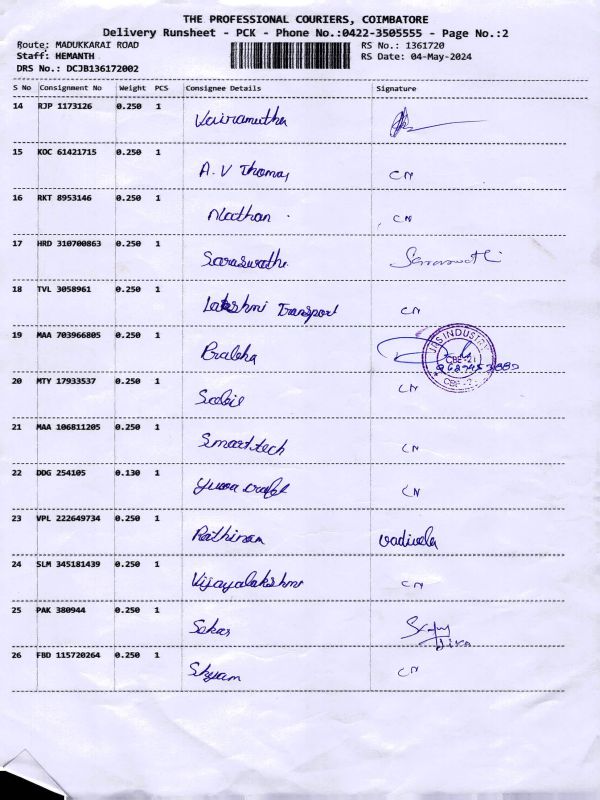 THE PROFESSIONAL COURIERS, COIMBATORE
Delivery Runsheet - PCK - Phone No.:0422-3505555 - Page No.:2
Route: MADUKKARAI ROAD RS No.: 1361720
Staff: HEMANTH RS Date: 04-May-2024
DRS No.: DCJB136172002
S No Consignment No Weight PCS Consignee Details Signature
14 RJP 1173126 0.250 1
Vairamuthu
15 KOC 61421715 0.250 1
A.V Thomas CN
16 RKT 8953146 0.250 1
Nathan CN
17 HRD 310700863 0.250 1
Saraswathi Saraswathi
18 TVL 3058961 0.250 1
Lakshmi Transport CN
19 MAA 703966805 0.250 1
INDUSTRY
CBE-21
20 MTY 17933537 0.250 1
CN
21 MAA 106811205 0.250 1
Smart tech CN
22 DDG 254105 0.130 1
Yuva CN
23 VPL 222649734 0.250 1
Rathinam vadivela
24 SLM 345181439 0.250 1
Vijayalakshmi CN
25 PAK 380944 0.250 1
Sekar
26 FBD 115720264 0.250 1
Shyam CN